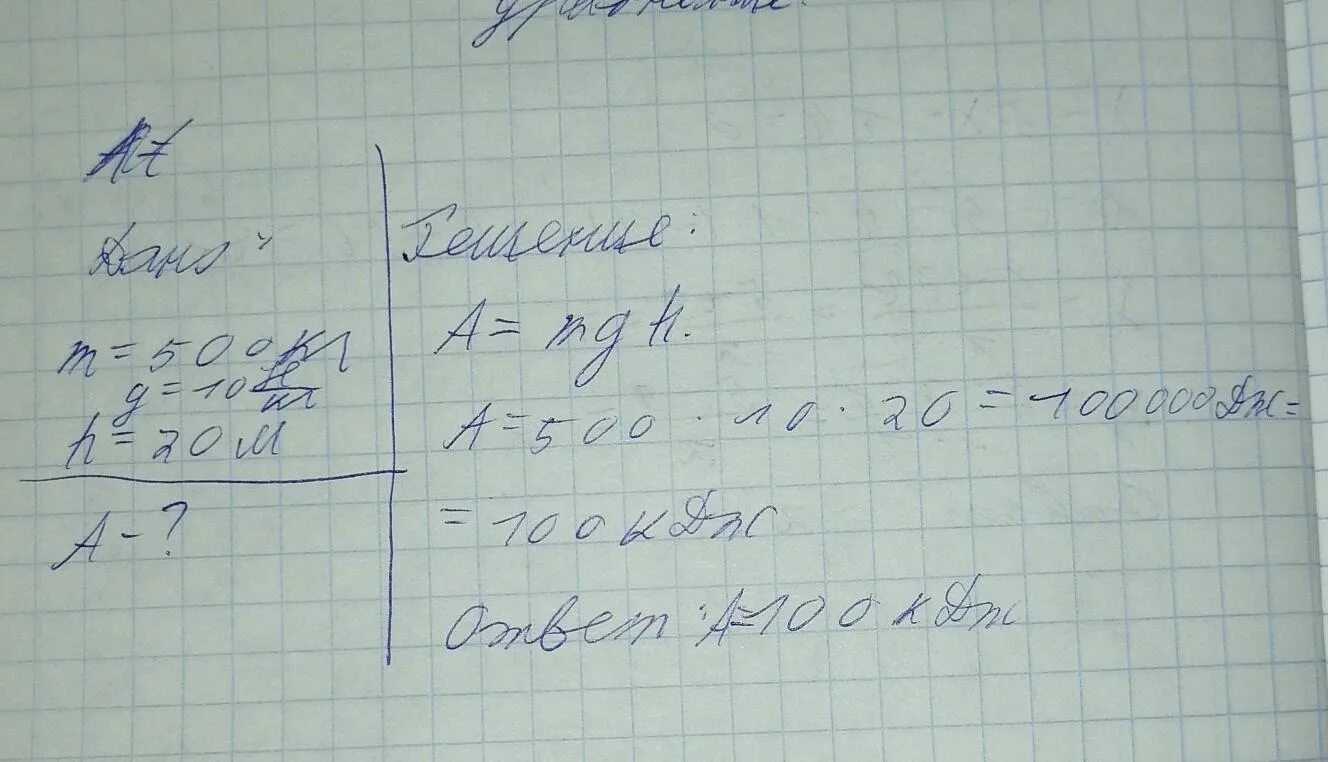 Дано:
m = 500 кг
g = 10 Н/кг
h = 20 м
A - ?
Решение:
A = mgh.
A = 500 · 10 · 20 = 100000 Дж =
= 100 кДж
Ответ: A = 100 кДж